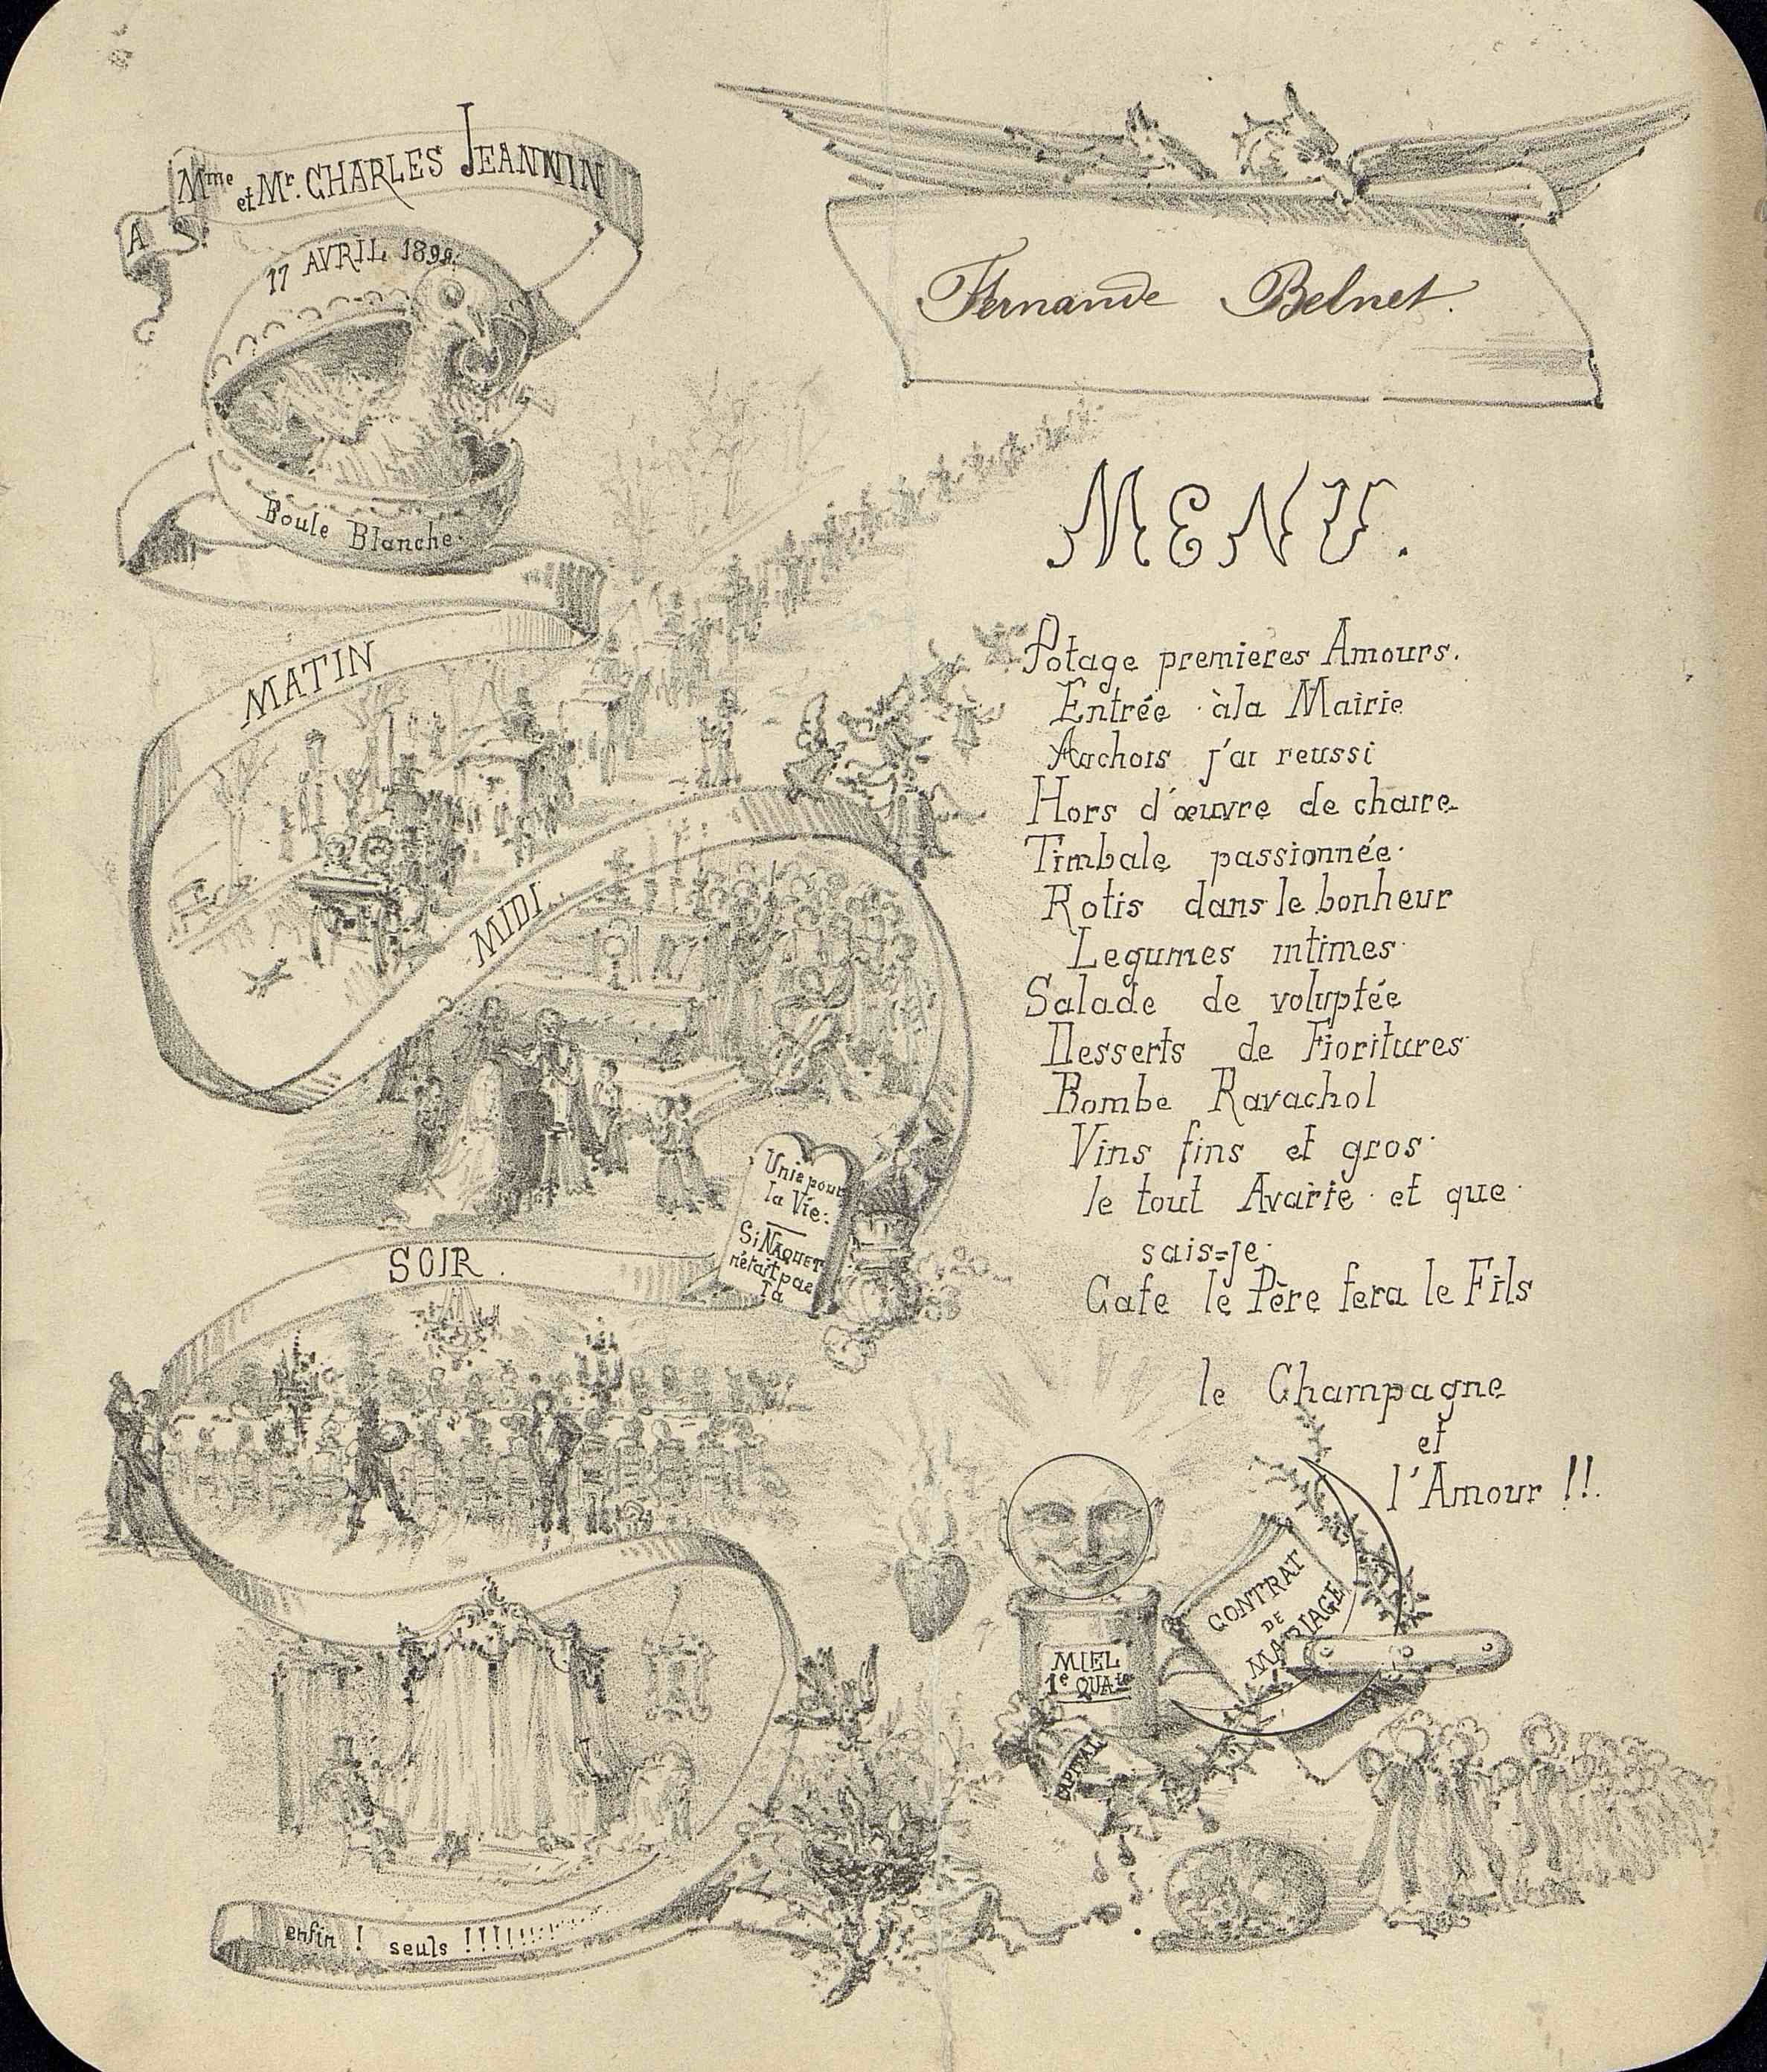 A
Mme et Mr. CHARLES JEANNIN
17 AVRIL 1899.
Boule Blanche.
MATIN
MIDI.
Unis pour
la Vie:
Si NAQUET
n'était pas
là
SOIR.
enfin ! seuls !!!!!!!
Fernande Belnet.
MENU.
Potage premieres Amours.
Entrée àla Mairie
Anchois j'ai reussi
Hors d'œuvre de chaire
Timbale passionnée
Rotis dans le bonheur
Legumes intimes
Salade de voluptée
Desserts de Fioritures
Bombe Ravachol
Vins fins et gros
le tout Avarie et que
sais=je
Cafe le Père fera le Fils
le Champagne
et
l'Amour !!.
CONTRAT
DE
MARIAGE
MIEL
1e QUAté
CAPITAL